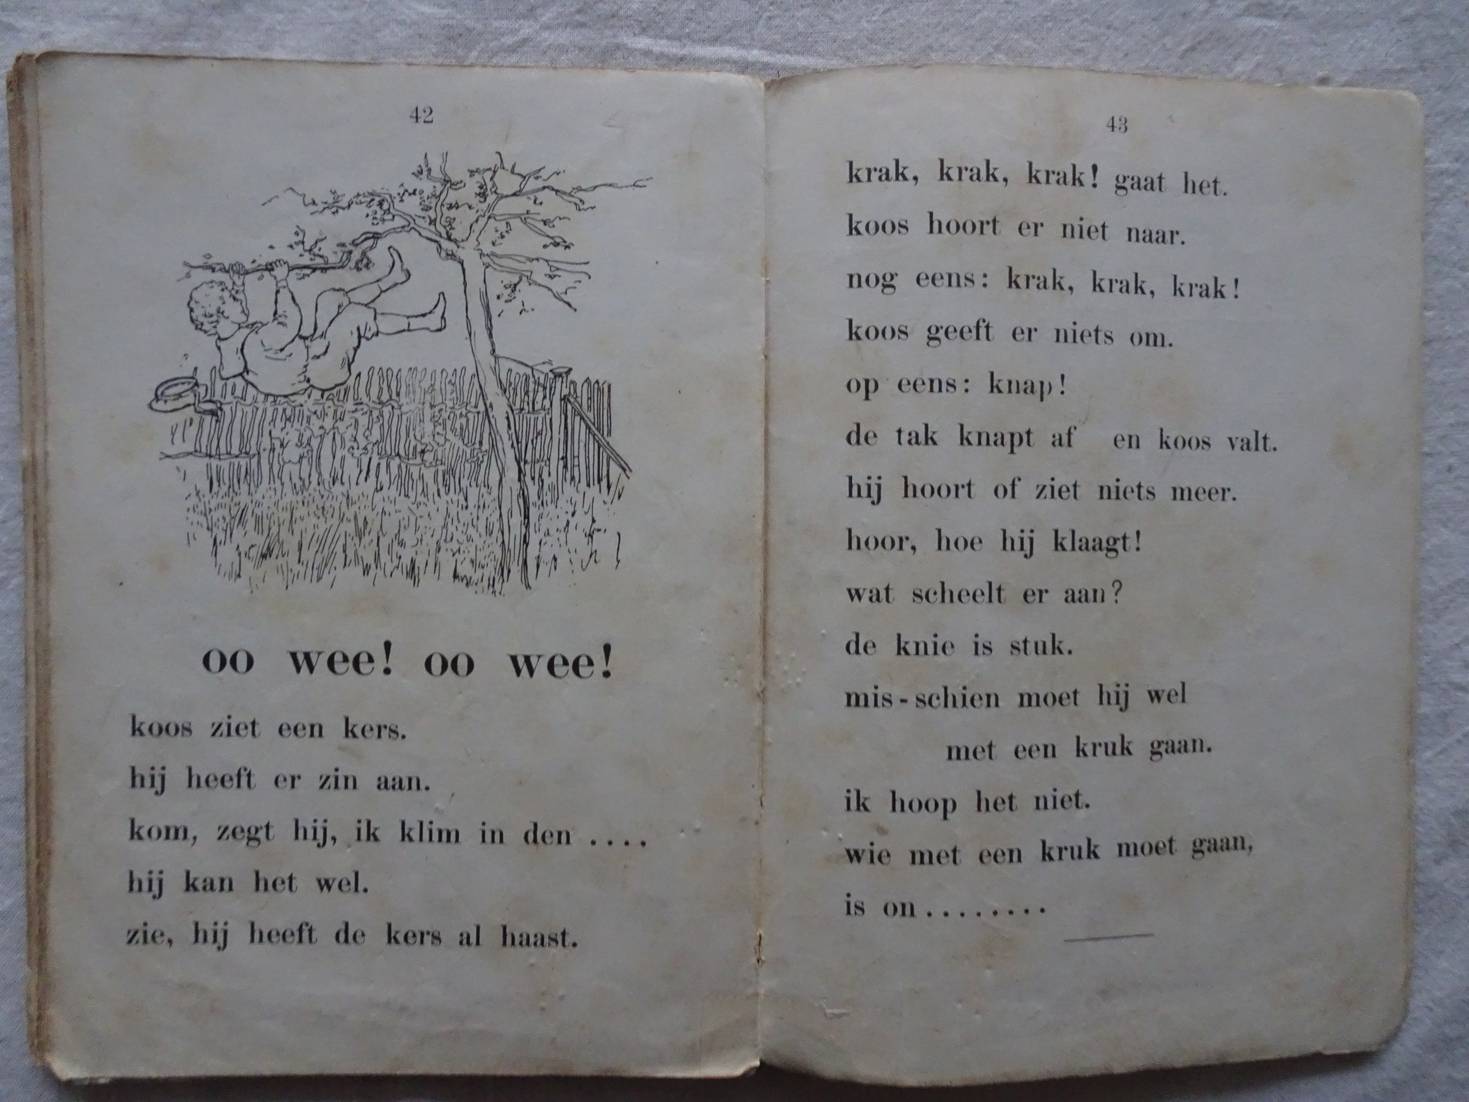 42
oo wee! oo wee!
koos ziet een kers.
hij heeft er zin aan.
kom, zegt hij, ik klim in den ....
hij kan het wel.
zie, hij heeft de kers al haast.
43
krak, krak, krak! gaat het.
koos hoort er niet naar.
nog eens: krak, krak, krak!
koos geeft er niets om.
op eens: knap!
de tak knapt af en koos valt.
hij hoort of ziet niets meer.
hoor, hoe hij klaagt!
wat scheelt er aan?
de knie is stuk.
mis-schien moet hij wel
met een kruk gaan.
ik hoop het niet.
wie met een kruk moet gaan,
is on........